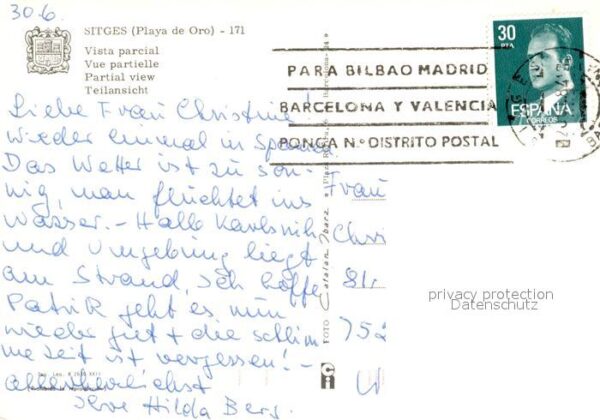 30.6.
SITGES (Playa de Oro) - 171
Vista parcial
Vue partielle
Partial view
Teilansicht
30
PTA
ESPAÑA
CORREOS
PARA BILBAO MADRID
BARCELONA Y VALENCIA
PONGA N.º DISTRITO POSTAL
Liebe Frau Christine!
wieder einmal in Spanien.
Das Wetter ist zu son-
nig, man flüchtet ins
Wasser. - Halb
und Umgebung liegt
am Strand, ich hoffe
Patrik geht es nun
wieder gut + die schlim
me Zeit ist vergessen! -
allerherzlichst
Ihre Hilda Berg.
Frau
Chri
81
752
W
FOTO Catalan Ibarz
privacy protection
Datenschutz